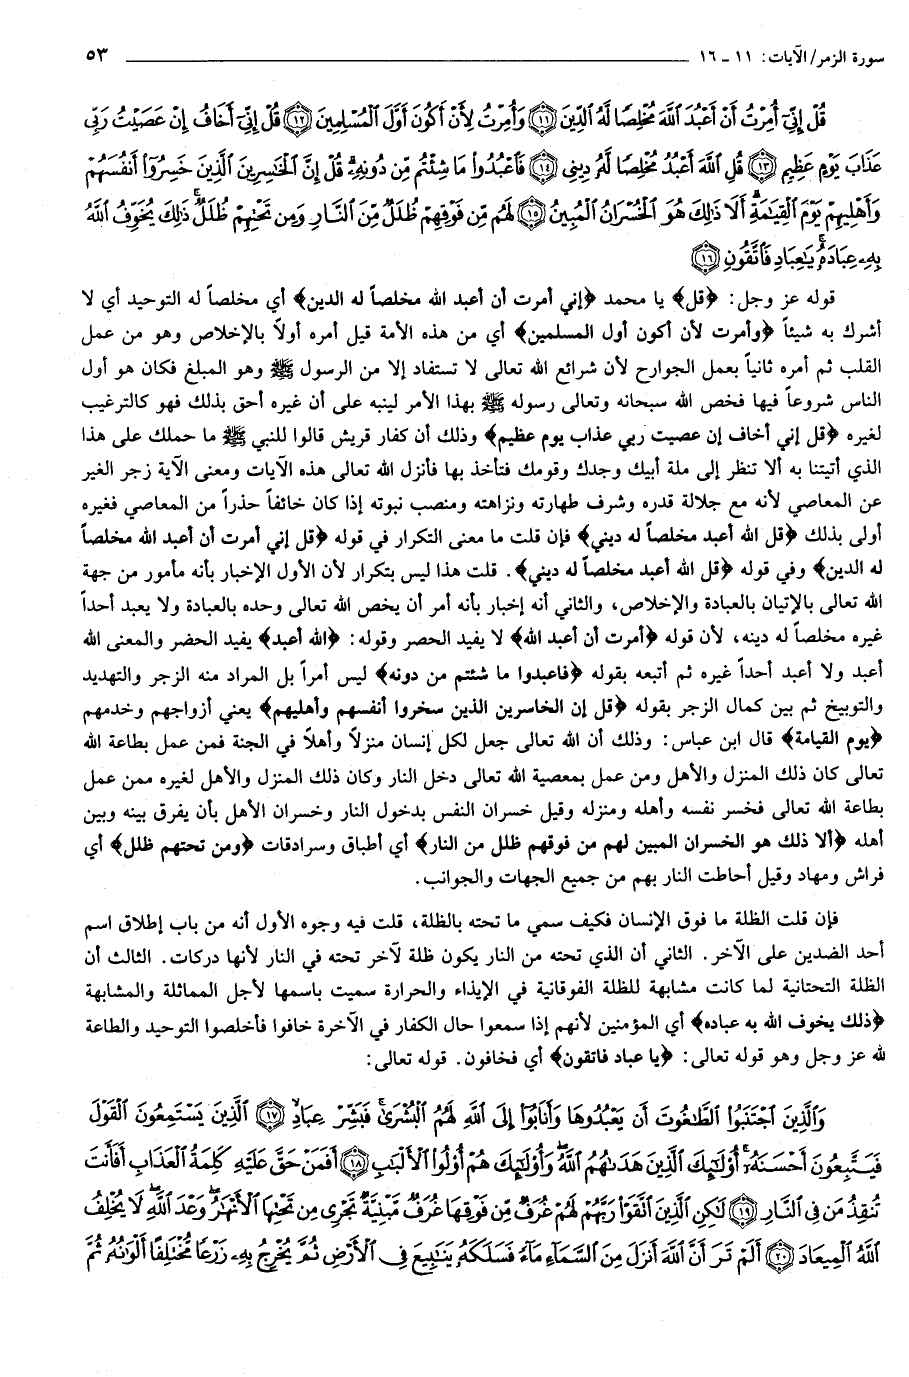 سورة الزمر/ الآيات: ١١ - ١٦ ٥٣
قُلْ إِنِّي أُمِرْتُ أَنْ أَعْبُدَ ٱللَّهَ مُخْلِصًا لَّهُ ٱلدِّينَ ﴿١١﴾ وَأُمِرْتُ لِأَنْ أَكُونَ أَوَّلَ ٱلْمُسْلِمِينَ ﴿١٢﴾ قُلْ إِنِّيٓ أَخَافُ إِنْ عَصَيْتُ رَبِّي
عَذَابَ يَوْمٍ عَظِيمٍ ﴿١٣﴾ قُلِ ٱللَّهَ أَعْبُدُ مُخْلِصًا لَّهُۥ دِينِي ﴿١٤﴾ فَٱعْبُدُوا۟ مَا شِئْتُم مِّن دُونِهِۦ ۗ قُلْ إِنَّ ٱلْخَٰسِرِينَ ٱلَّذِينَ خَسِرُوٓا۟ أَنفُسَهُمْ
وَأَهْلِيهِمْ يَوْمَ ٱلْقِيَٰمَةِ ۗ أَلَا ذَٰلِكَ هُوَ ٱلْخُسْرَانُ ٱلْمُبِينُ ﴿١٥﴾ لَهُم مِّن فَوْقِهِمْ ظُلَلٌ مِّنَ ٱلنَّارِ وَمِن تَحْتِهِمْ ظُلَلٌ ۚ ذَٰلِكَ يُخَوِّفُ ٱللَّهُ
بِهِۦ عِبَادَهُۥ ۚ يَٰعِبَادِ فَٱتَّقُونِ ﴿١٦﴾
قوله عز وجل: ﴿قل﴾ يا محمد ﴿إني أمرت أن أعبد الله مخلصاً له الدين﴾ أي مخلصاً له التوحيد أي لا
أشرك به شيئاً ﴿وأمرت لأن أكون أول المسلمين﴾ أي من هذه الأمة قيل أمره أولاً بالإخلاص وهو من عمل
القلب ثم أمره ثانياً بعمل الجوارح لأن شرائع الله تعالى لا تستفاد إلا من الرسول ﷺ وهو المبلغ فكان هو أول
الناس شروعاً فيها فخص الله سبحانه وتعالى رسوله ﷺ بهذا الأمر لينبه على أن غيره أحق بذلك فهو كالترغيب
لغيره ﴿قل إني أخاف إن عصيت ربي عذاب يوم عظيم﴾ وذلك أن كفار قريش قالوا للنبي ﷺ ما حملك على هذا
الذي أتيتنا به ألا تنظر إلى ملة أبيك وجدك وقومك فتأخذ بها فأنزل الله تعالى هذه الآيات ومعنى الآية زجر الغير
عن المعاصي لأنه مع جلالة قدره وشرف طهارته ونزاهته ومنصب نبوته إذا كان خائفاً حذراً من المعاصي فغيره
أولى بذلك ﴿قل الله أعبد مخلصاً له ديني﴾ فإن قلت ما معنى التكرار في قوله ﴿قل إني أمرت أن أعبد الله مخلصاً
له الدين﴾ وفي قوله ﴿قل الله أعبد مخلصاً له ديني﴾. قلت هذا ليس بتكرار لأن الأول الإخبار بأنه مأمور من جهة
الله تعالى بالإتيان بالعبادة والإخلاص، والثاني أنه إخبار بأنه أمر أن يخص الله تعالى وحده بالعبادة ولا يعبد أحداً
غيره مخلصاً له دينه، لأن قوله ﴿أمرت أن أعبد الله﴾ لا يفيد الحصر وقوله: ﴿الله أعبد﴾ يفيد الحضر والمعنى الله
أعبد ولا أعبد أحداً غيره ثم أتبعه بقوله ﴿فاعبدوا ما شئتم من دونه﴾ ليس أمراً بل المراد منه الزجر والتهديد
والتوبيخ ثم بين كمال الزجر بقوله ﴿قل إن الخاسرين الذين سخروا أنفسهم وأهليهم﴾ يعني أزواجهم وخدمهم
﴿يوم القيامة﴾ قال ابن عباس: وذلك أن الله تعالى جعل لكل إنسان منزلاً وأهلاً في الجنة فمن عمل بطاعة الله
تعالى كان ذلك المنزل والأهل ومن عمل بمعصية الله تعالى دخل النار وكان ذلك المنزل والأهل لغيره ممن عمل
بطاعة الله تعالى فخسر نفسه وأهله ومنزله وقيل خسران النفس بدخول النار وخسران الأهل بأن يفرق بينه وبين
أهله ﴿ألا ذلك هو الخسران المبين لهم من فوقهم ظلل من النار﴾ أي أطباق وسرادقات ﴿ومن تحتهم ظلل﴾ أي
فراش ومهاد وقيل أحاطت النار بهم من جميع الجهات والجوانب.
فإن قلت الظلة ما فوق الإنسان فكيف سمي ما تحته بالظلة، قلت فيه وجوه الأول أنه من باب إطلاق اسم
أحد الضدين على الآخر. الثاني أن الذي تحته من النار يكون ظلة لآخر تحته في النار لأنها دركات. الثالث أن
الظلة التحتانية لما كانت مشابهة للظلة الفوقانية في الإيذاء والحرارة سميت باسمها لأجل المماثلة والمشابهة
﴿ذلك يخوف الله به عباده﴾ أي المؤمنين لأنهم إذا سمعوا حال الكفار في الآخرة خافوا فأخلصوا التوحيد والطاعة
لله عز وجل وهو قوله تعالى: ﴿يا عباد فاتقون﴾ أي فخافون. قوله تعالى:
وَٱلَّذِينَ ٱجْتَنَبُوا۟ ٱلطَّٰغُوتَ أَن يَعْبُدُوهَا وَأَنَابُوٓا۟ إِلَى ٱللَّهِ لَهُمُ ٱلْبُشْرَىٰ ۚ فَبَشِّرْ عِبَادِ ﴿١٧﴾ ٱلَّذِينَ يَسْتَمِعُونَ ٱلْقَوْلَ
فَيَتَّبِعُونَ أَحْسَنَهُۥٓ ۚ أُو۟لَٰٓئِكَ ٱلَّذِينَ هَدَىٰهُمُ ٱللَّهُ ۖ وَأُو۟لَٰٓئِكَ هُمْ أُو۟لُوا۟ ٱلْأَلْبَٰبِ ﴿١٨﴾ أَفَمَنْ حَقَّ عَلَيْهِ كَلِمَةُ ٱلْعَذَابِ أَفَأَنتَ
تُنقِذُ مَن فِي ٱلنَّارِ ﴿١٩﴾ لَٰكِنِ ٱلَّذِينَ ٱتَّقَوْا۟ رَبَّهُمْ لَهُمْ غُرَفٌ مِّن فَوْقِهَا غُرَفٌ مَّبْنِيَّةٌ تَجْرِي مِن تَحْتِهَا ٱلْأَنْهَٰرُ ۖ وَعْدَ ٱللَّهِ ۖ لَا يُخْلِفُ
ٱللَّهُ ٱلْمِيعَادَ ﴿٢٠﴾ أَلَمْ تَرَ أَنَّ ٱللَّهَ أَنزَلَ مِنَ ٱلسَّمَآءِ مَآءً فَسَلَكَهُۥ يَنَٰبِيعَ فِي ٱلْأَرْضِ ثُمَّ يُخْرِجُ بِهِۦ زَرْعًا مُّخْتَلِفًا أَلْوَٰنُهُۥ ثُمَّ